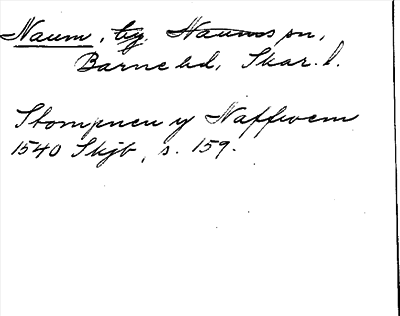 Naum, by. Naums sn,
Barne hd, Skar. l.
Stompnen y Naffwem
1540 Skjb, s. 159.